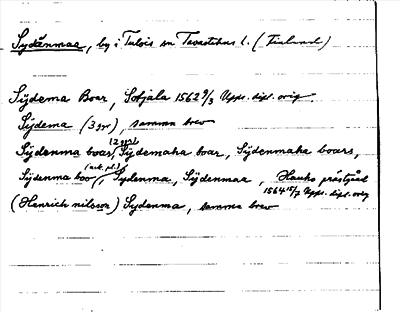 Sydänmaa, by i Tulois sn Tavastehus l. (Finland)
Sÿdema Boar, Sotjala 1562 9/3 Upps. dipl. orig.
Sÿdema (3 ggr), samma brev
Sÿdenma boar, (2 ggr) Sÿdemaha boar, Sÿdenmaha boars,
Sÿdenma boo (, Sydenma, Sÿdenmaa, Hauho prästgård
1564 15/7 Upps. dipl. orig
(Henrich nilsson) Sydenma, samma brev